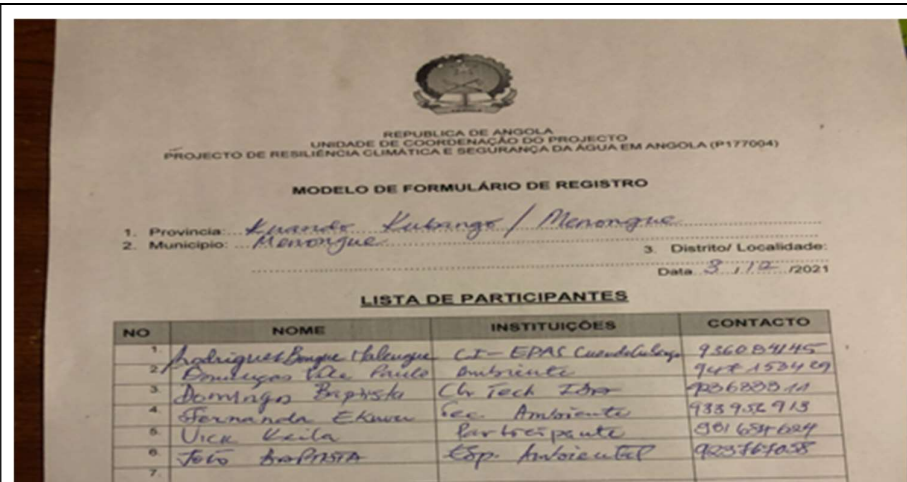 REPUBLICA DE ANGOLA
UNIDADE DE COORDENAÇÃO DO PROJECTO
PROJECTO DE RESILIÊNCIA CLIMÁTICA E SEGURANÇA DA ÁGUA EM ANGOLA (P177004)
MODELO DE FORMULÁRIO DE REGISTRO
1. Província: Kuando Kubango / Menongue
2. Município: Menongue
3. Distrito/ Localidade:
Data 3 / 12 /2021
LISTA DE PARTICIPANTES
NO NOME INSTITUIÇÕES CONTACTO
1. Rodrigues CI - EPAS Cuando Cubango
2. Domingas Paulo Ambiente
3. Domingo Baptista Tech
4. Fernanda Tec. Ambiente 933956913
5. Keila Participante
6. João BAPTISTA Esp. Ambiental 923767058
7.